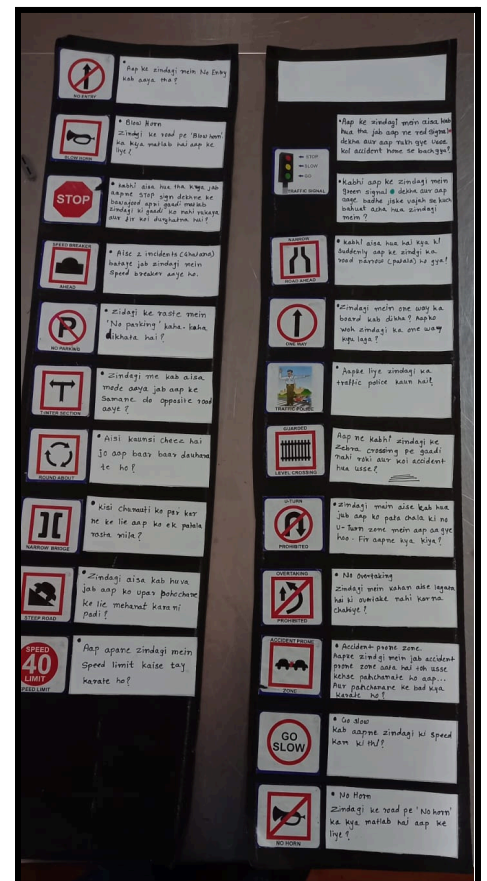 NO ENTRY
• Aap ke zindagi mein No Entry
kab aaya tha?
SLOW HORN
• Blow Horn
Zindigi ke road pe 'Blow horn'
ka kya matlab hai aap ke
liye?
STOP
• kabhi aisa hua tha kya jab
aapne STOP sign dekhne ke
bawajood apni gaadi matlab
zindagi ki gaadi ko nahi rukaya
aur fir koi durghatna hui?
SPEED BREAKER
AHEAD
• Aise 2 incidents (Ghatana)
bataye jab zindagi mein
Speed breaker aaye ho.
NO PARKING
• Zidagi ke raste mein
'No parking' kaha-kaha
dikhata hai?
T.INTER SECTION
• Zindagi me kab aisa
mode aaya jab aap ke
Samane do opposite road
aaye?
ROUND ABOUT
• Aisi kaunsi cheez hai
jo aap baar baar dauhara
te ho?
NARROW BRIDGE
• Kisi chunauti ko par kar
ne ke lie aap ko ek patala
rasta mila?
STEEP ROAD
• Zindagi aisa kab huva
jab aap ko upar pohochane
ke lie mehanat karani
padi?
SPEED
40
LIMIT
PEED LIMIT
• Aap apane zindagi mein
Speed limit kaise tay
karate ho?
STOP
SLOW
GO
TRAFFIC SIGNAL
• Aap ke zindagi mein aisa kab
hua tha jab aap ne red signal
dekha aur aap rukh gye usse
koi accident hone se bach gya?
• Kabhi aap ke zindagi mein
green signal dekha aur aap
aage badhe jiske vajah se kuch
bahuat acha hua zindagi
mein?
NARROW
ROAD AHEAD
• kabhi aisa hua hai kya ki
Suddenly aap ke zindgi ka
road narrow (patala) ho gya!
ONE WAY
• Zindagi mein one way ka
board kab dikha? Aapko
woh zindagi ka one way
kyu laga?
TRAFFIC POLICE
• Aapke liye zindagi ka
traffic police kaun hai?
GUARDED
LEVEL CROSSING
Aap ne kabhi zindagi ke
Zebra crossing pe gaadi
nahi roki aur koi accident
hua usse?
U-TURN
PROHIBITED
• Zindagi mein aise kab hua
jab aap ko pata chala ki no
U-Turn zone mein aap aa gye
hoo. Fir aapne kya kiya?
OVERTAKING
PROHIBITED
• No Overtaking
Zindagi mein kahan aise lagata
hai ki overtake nahi karna
chahiye?
ACCIDENT PRONE
ZONE
• Accident prone zone.
Aapke zindgi mein jab accident
prone zone aata hai toh usse
kaise pahchanate ho aap...
Aur pahchanane ke bad kya
karate ho?
GO
SLOW
• Go slow
kab aapne zindagi ki speed
kam ki thi?
NO HORN
• No Horn
Zindagi ke road pe 'No horn'
ka kya matlab hai aap ke
liye?